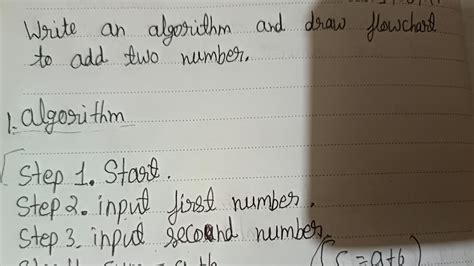 Write an algorithm and draw flowchart
to add two number.
1. algorithm
Step 1. Start.
Step 2. input first number.
Step 3. input second number.
(c = a+b)